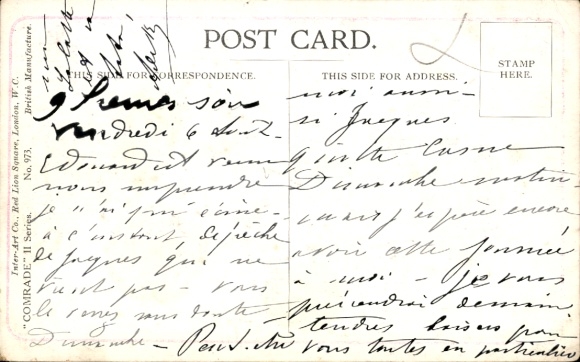 POST CARD.
THIS SIDE FOR CORRESPONDENCE.
THIS SIDE FOR ADDRESS.
STAMP
HERE.
Inter-Art Co., Red Lion Square, London, W.C.
British Manufacture.
"COMRADE" II Series.
No. 973.
9 heures soir
Vendredi 6
Edouard est venu
nous surprendre
je n'ai
à l'instant, dépêche
de Jacques qui ne
vient pas - vous
le verrez sans doute
Dimanche - Peut-être
moi aussi -
si Jacques
Dimanche matin
j'espère encore
avoir cette journée
à moi - je vous
demain
tendres baisers pour
vous toutes en particulier